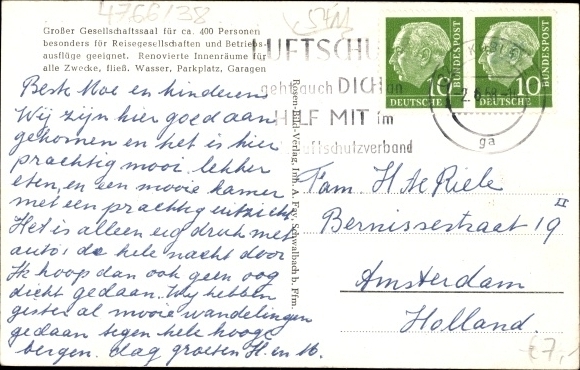 4766/38
Großer Gesellschaftssaal für ca. 400 Personen
besonders für Reisegesellschaften und Betriebs-
ausflüge geeignet. Renovierte Innenräume für
alle Zwecke, fließ. Wasser, Parkplatz, Garagen
Beste Moe en kinderen
Wij zijn hier goed aan
gekomen en het is hier
prachtig mooi lekker
eten, en een mooie kamer
met een prachtig uitzicht
Het is alleen erg druk met
auto's de hele nacht door
Ik hoop dan ook geen oog
dicht gedaan. Wij hebben
gister al mooie wandelingen
gedaan tegen hele hooge
bergen. dag groeten H. en M.
Rosen-Bild-Verlag, Inh. A. Fay, Schwalbach b. Ffm.
LUFTSCHU
geht auch DICH an
HILF MIT im
Luftschutzverband
10
DEUTSCHE
BUNDESPOST
10
DEUTSCHE
BUNDESPOST
ga
Fam. H te Riele
Bernissestraat 19 II
Amsterdam
Holland.
€7,-